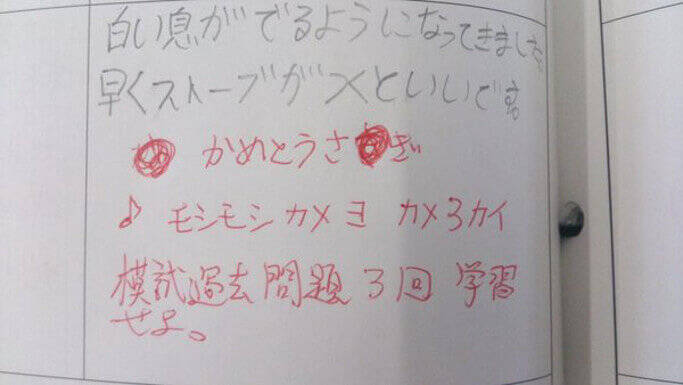 白い息がでるようになってきました。
早くストーブがつくといいです。
かめとうさぎ
♪ モシモシカメヨ カメ3カイ
模試過去問題3回 学習
せよ。